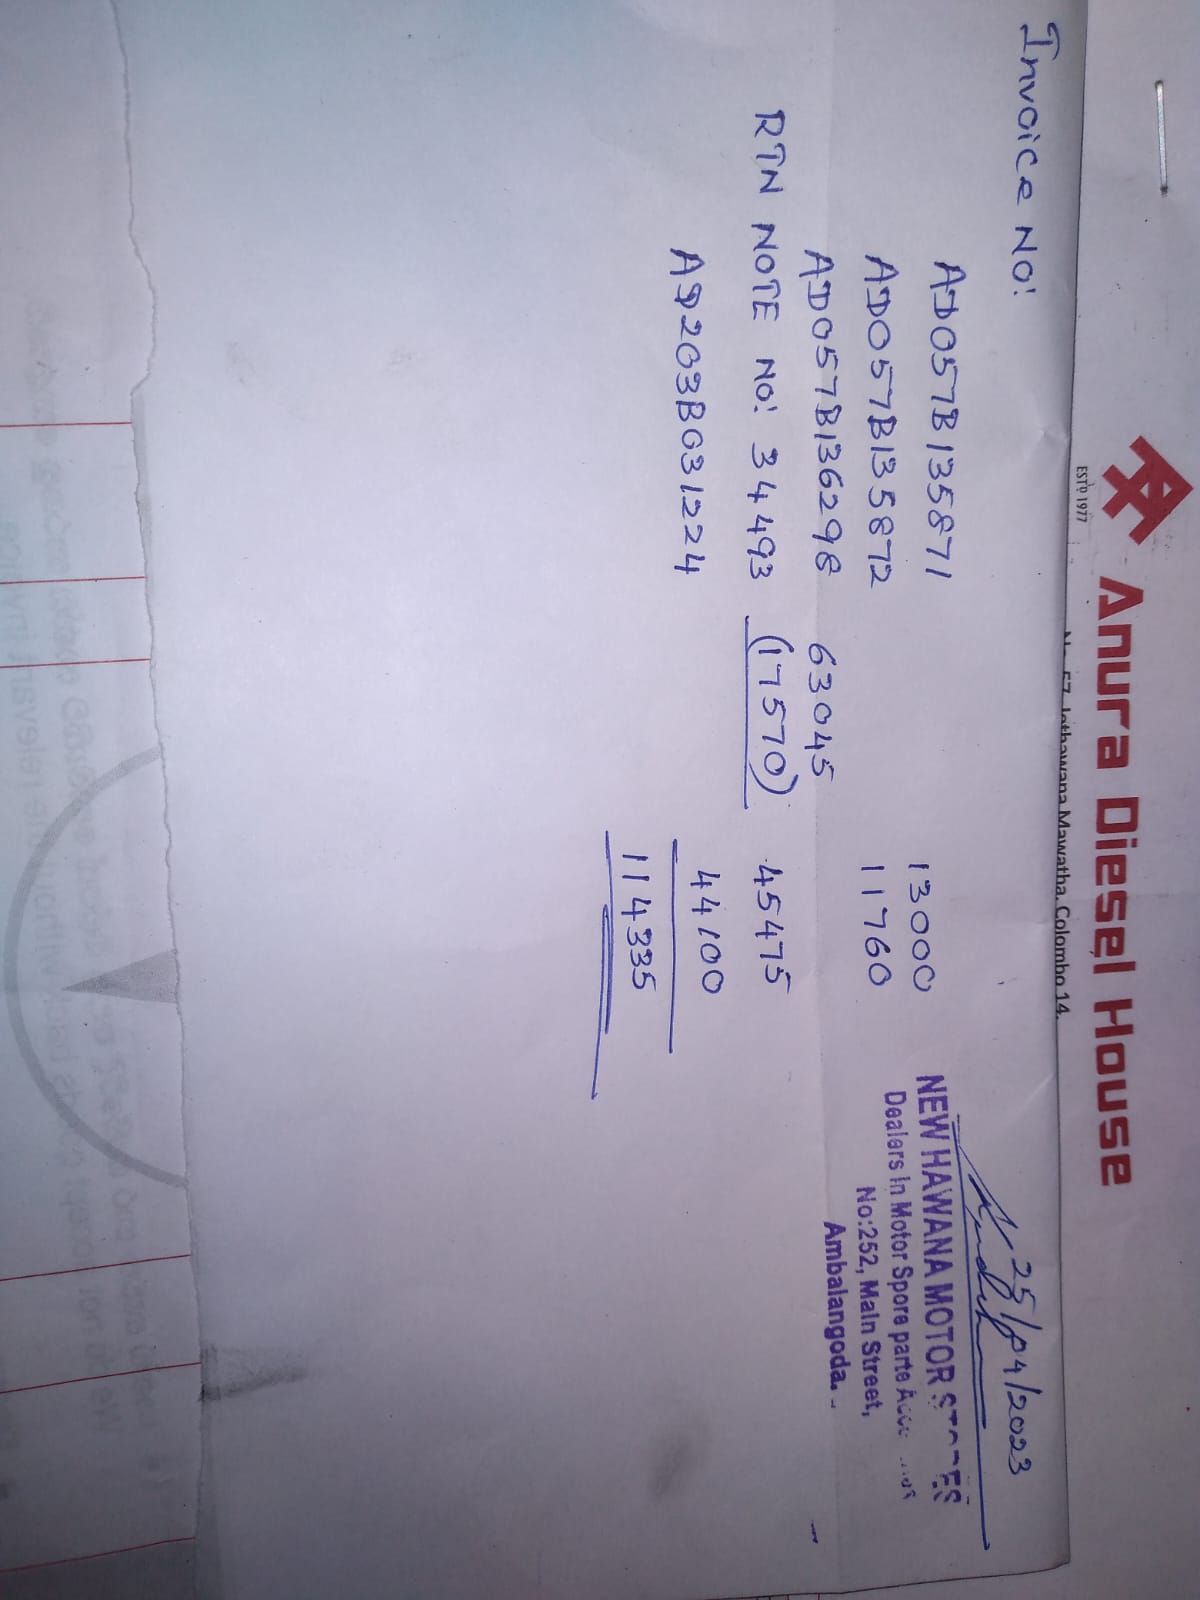 ESTD 1977
Anura Diesel House
No. 57, Jethawana Mawatha, Colombo 14.
25/04/2023
Invoice No:
AD057B135871 13000
AD057B135872 11760
AD057B136298 63045
RTN NOTE No: 34493 (17570) 45475
AD203B031224 44100
114335
NEW HAWANA MOTOR STORES
Dealers In Motor Spore parte
No:252, Main Street,
Ambalangoda.